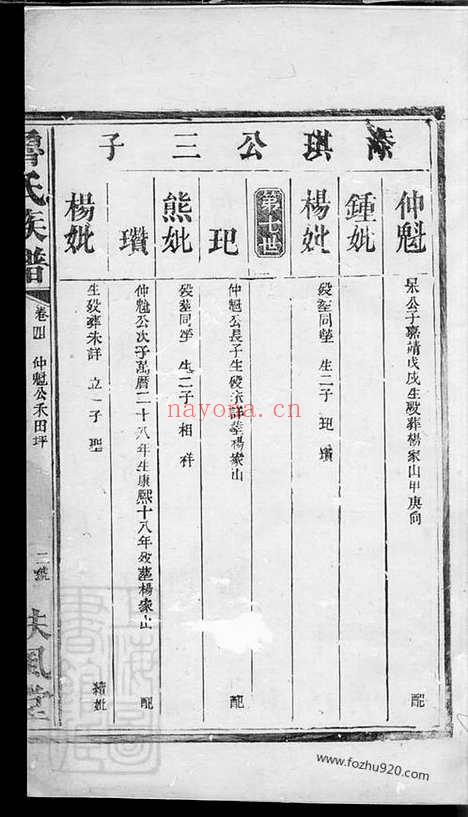 添琪公三子
仲魁 呆公子嘉靖戊戌生歿葬楊家山甲庚向 配
鍾妣
楊妣 歿塟同塋 生二子 玘 瓚
第七世
玘 仲魁公長子生歿未詳塟楊家山 配
熊妣 歿塟同塋 生二子 相 祥
瓚 仲魁公次子萬曆二十八年生康熙十八年歿塟楊家山 配
楊妣 生歿葬未詳 立一子 聖 繼妣
魯氏族譜 卷四 仲魁公禾田坪 二號 扶風堂
nayona.cn
上海圖書館藏
www.fozhu920.com